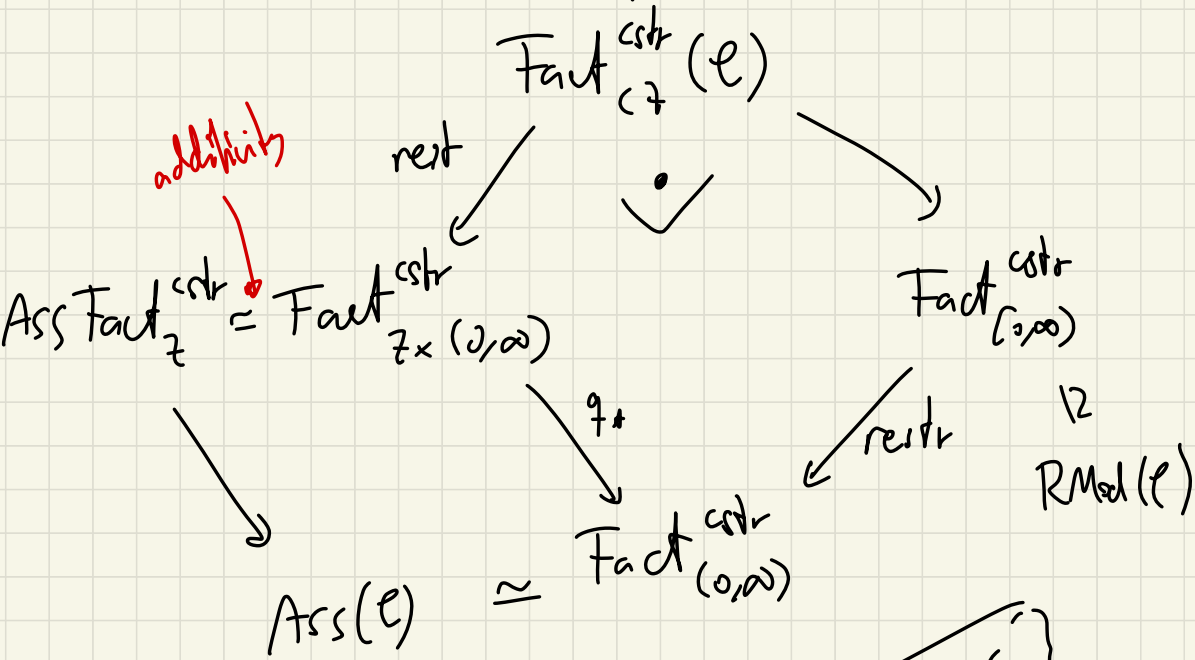 Fact^{cstr}_{CZ}(𝒞)
additivity
rest
AssFact^{cstr}_Z ≃ Fact^{cstr}_{Z×(0,∞)}
Fact^{cstr}_{[0,∞)}
q_*
restr
≀≀
RMod(𝒞)
Ass(𝒞) ≃ Fact^{cstr}_{(0,∞)}